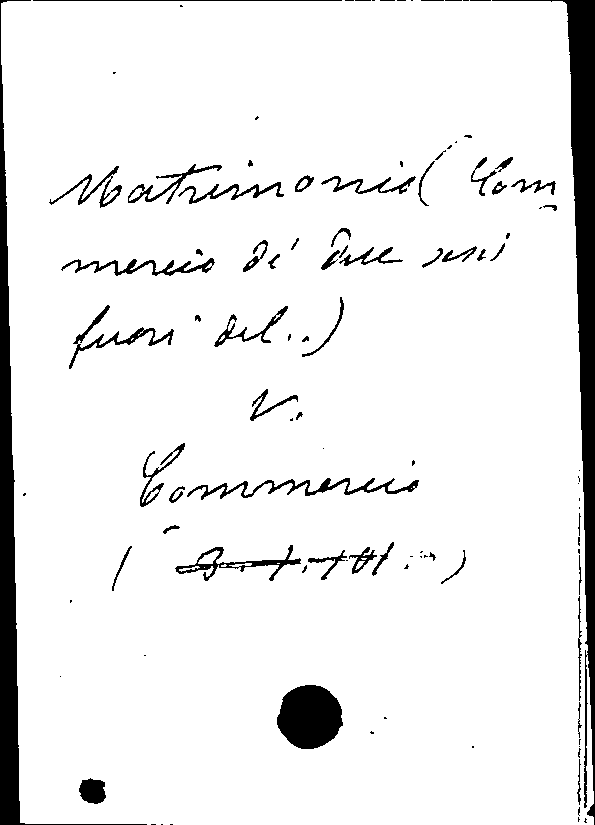 Matrimonio (Com
mercio de' due sessi
fuori del..)
V.
Commercio
( B. I. 101.. )